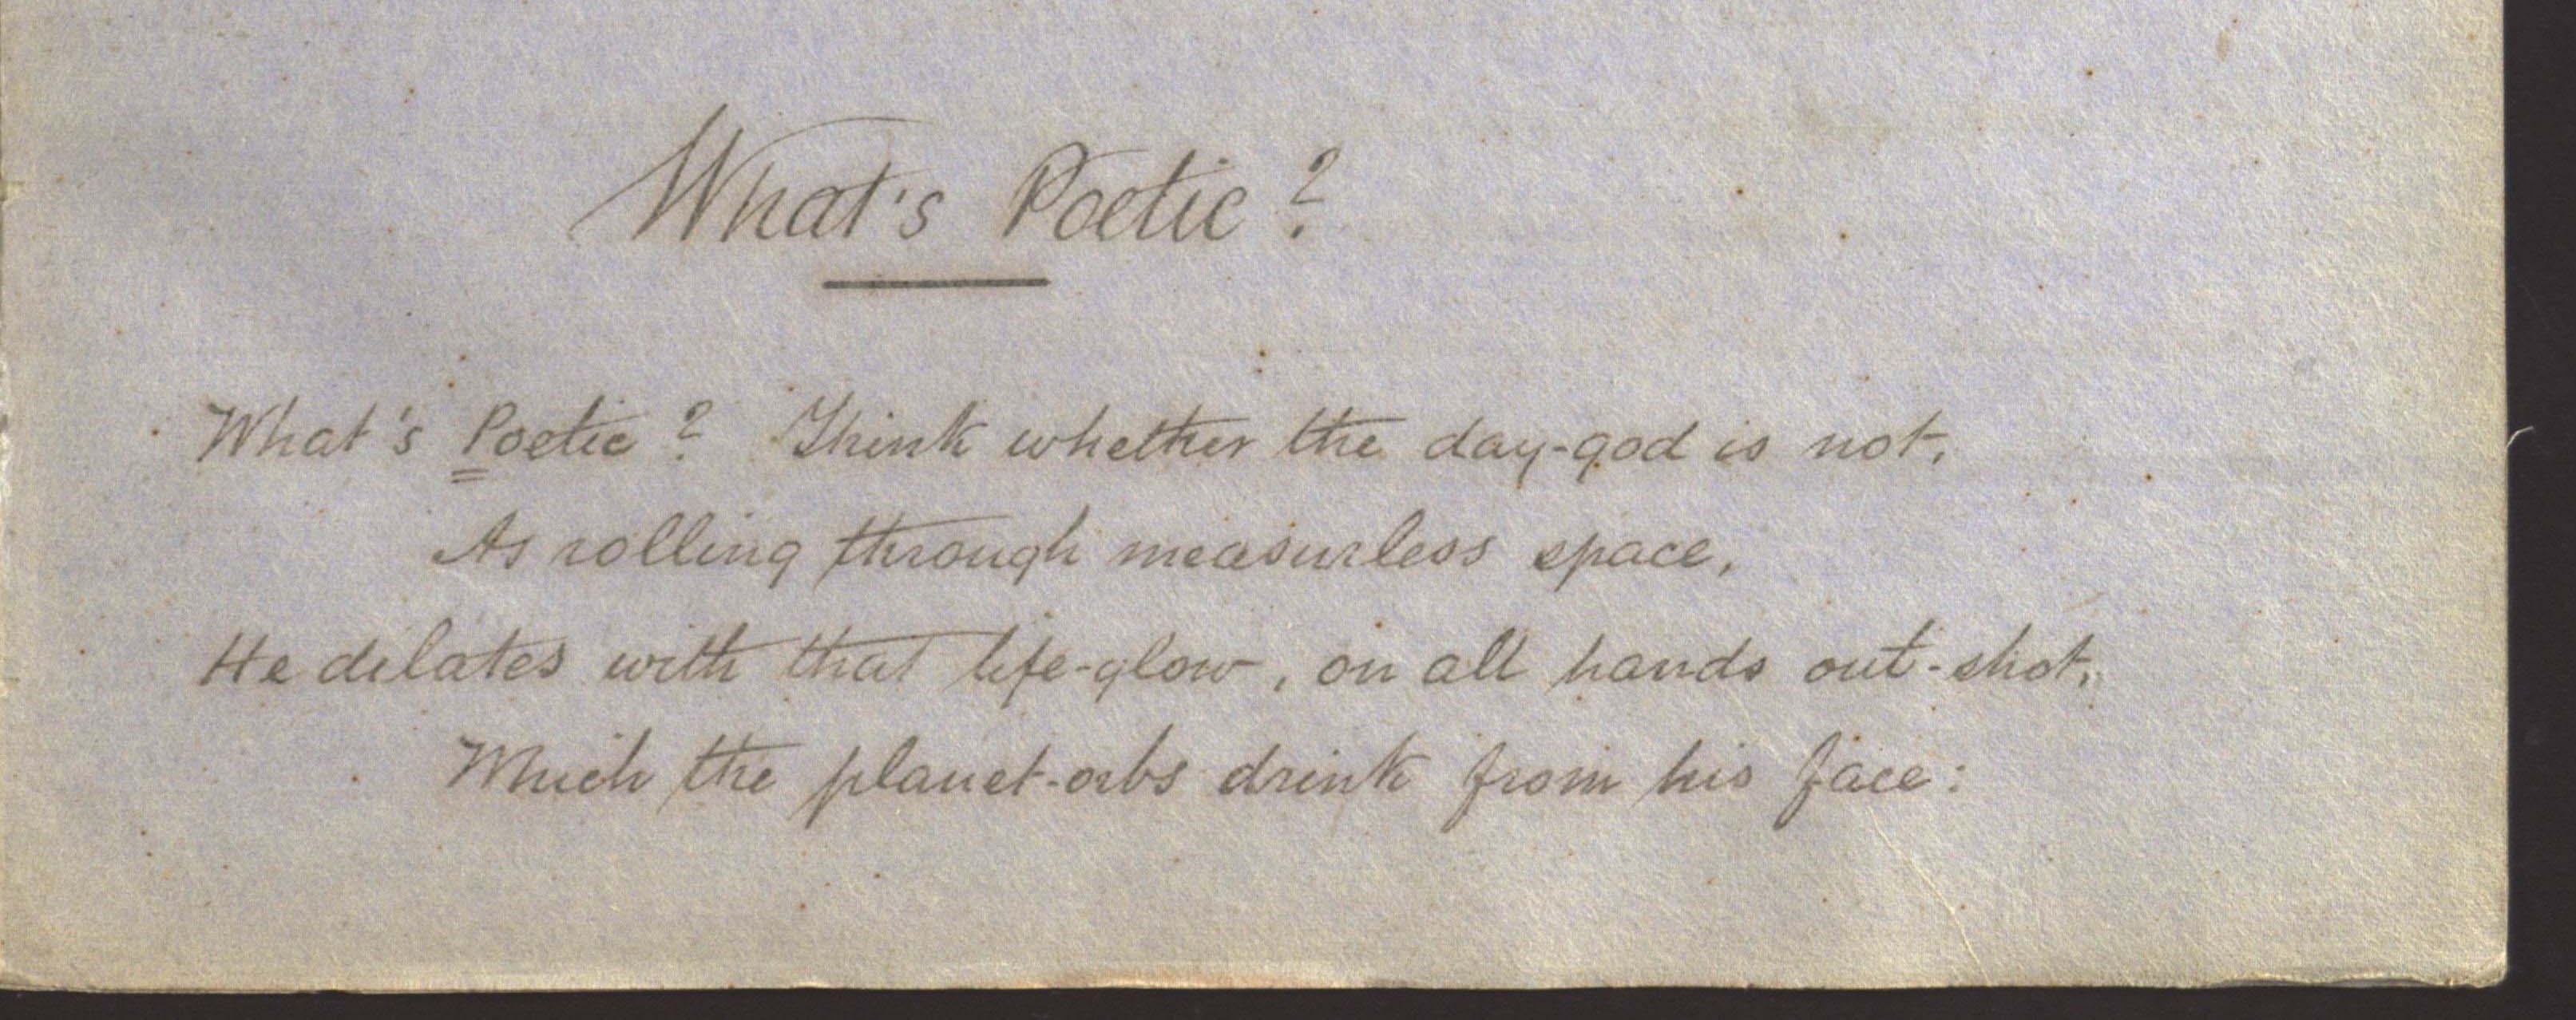 What's Poetic?
What's Poetic? Think whether the day-god is not,
As rolling through measurless space,
He dilates with that life-glow, on all hands out-shot,
Which the planet-orbs drink from his face: